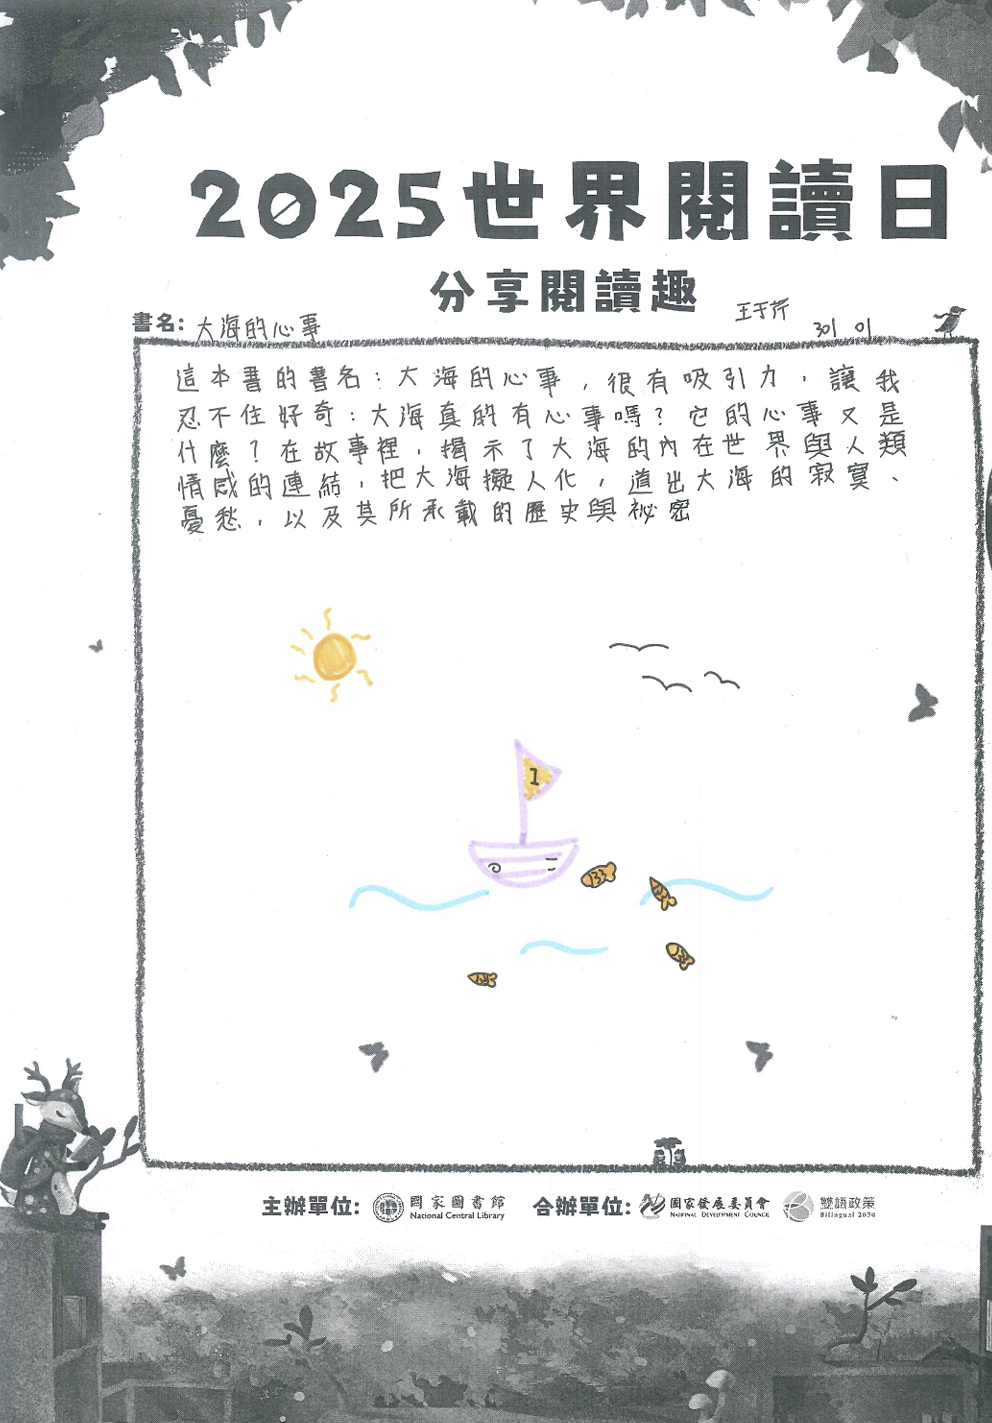 2025世界閱讀日
分享閱讀趣
王于芹
書名: 大海的心事
301 01
這本書的書名:大海的心事,很有吸引力,讓我
忍不住好奇:大海真的有心事嗎?它的心事又是
什麼?在故事裡,揭示了大海的內在世界與人類
情感的連結,把大海擬人化,道出大海的寂寞、
憂愁,以及其所承載的歷史與祕密
1
主辦單位: 國家圖書館 National Central Library 合辦單位: 國家發展委員會 National Development Council 雙語政策 Bilingual 2030